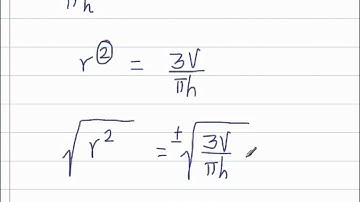 πh
r² = 3V/πh
√r² = ±√3V/πh